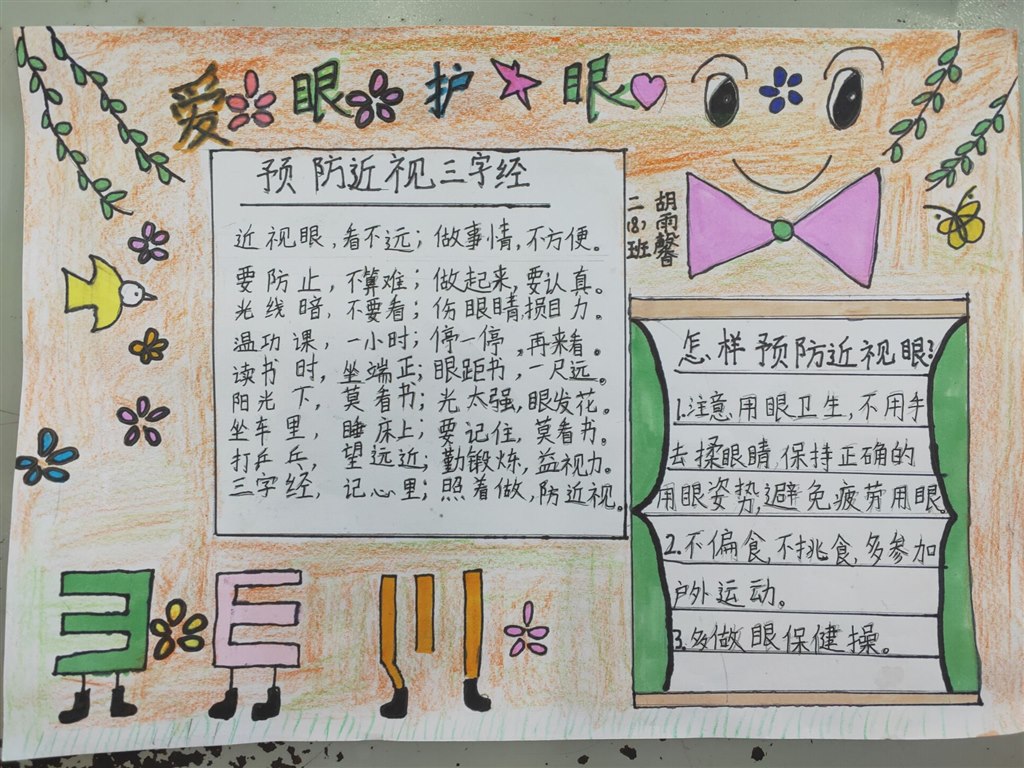 爱眼护眼
预防近视三字经
近视眼,看不远;做事情,不方便。
要防止,不算难;做起来,要认真。
光线暗,不要看;伤眼睛,损目力。
温功课,一小时;停一停,再来看。
读书时,坐端正;眼距书,一尺远。
阳光下,莫看书;光太强,眼发花。
坐车里,睡床上;要记住,莫看书。
打乒乓,望远近;勤锻炼,益视力。
三字经,记心里;照着做,防近视。
二(8)班
胡雨馨
怎样预防近视眼?
1.注意用眼卫生,不用手
去揉眼睛,保持正确的
用眼姿势,避免疲劳用眼。
2.不偏食,不挑食,多参加
户外运动。
3.多做眼保健操。